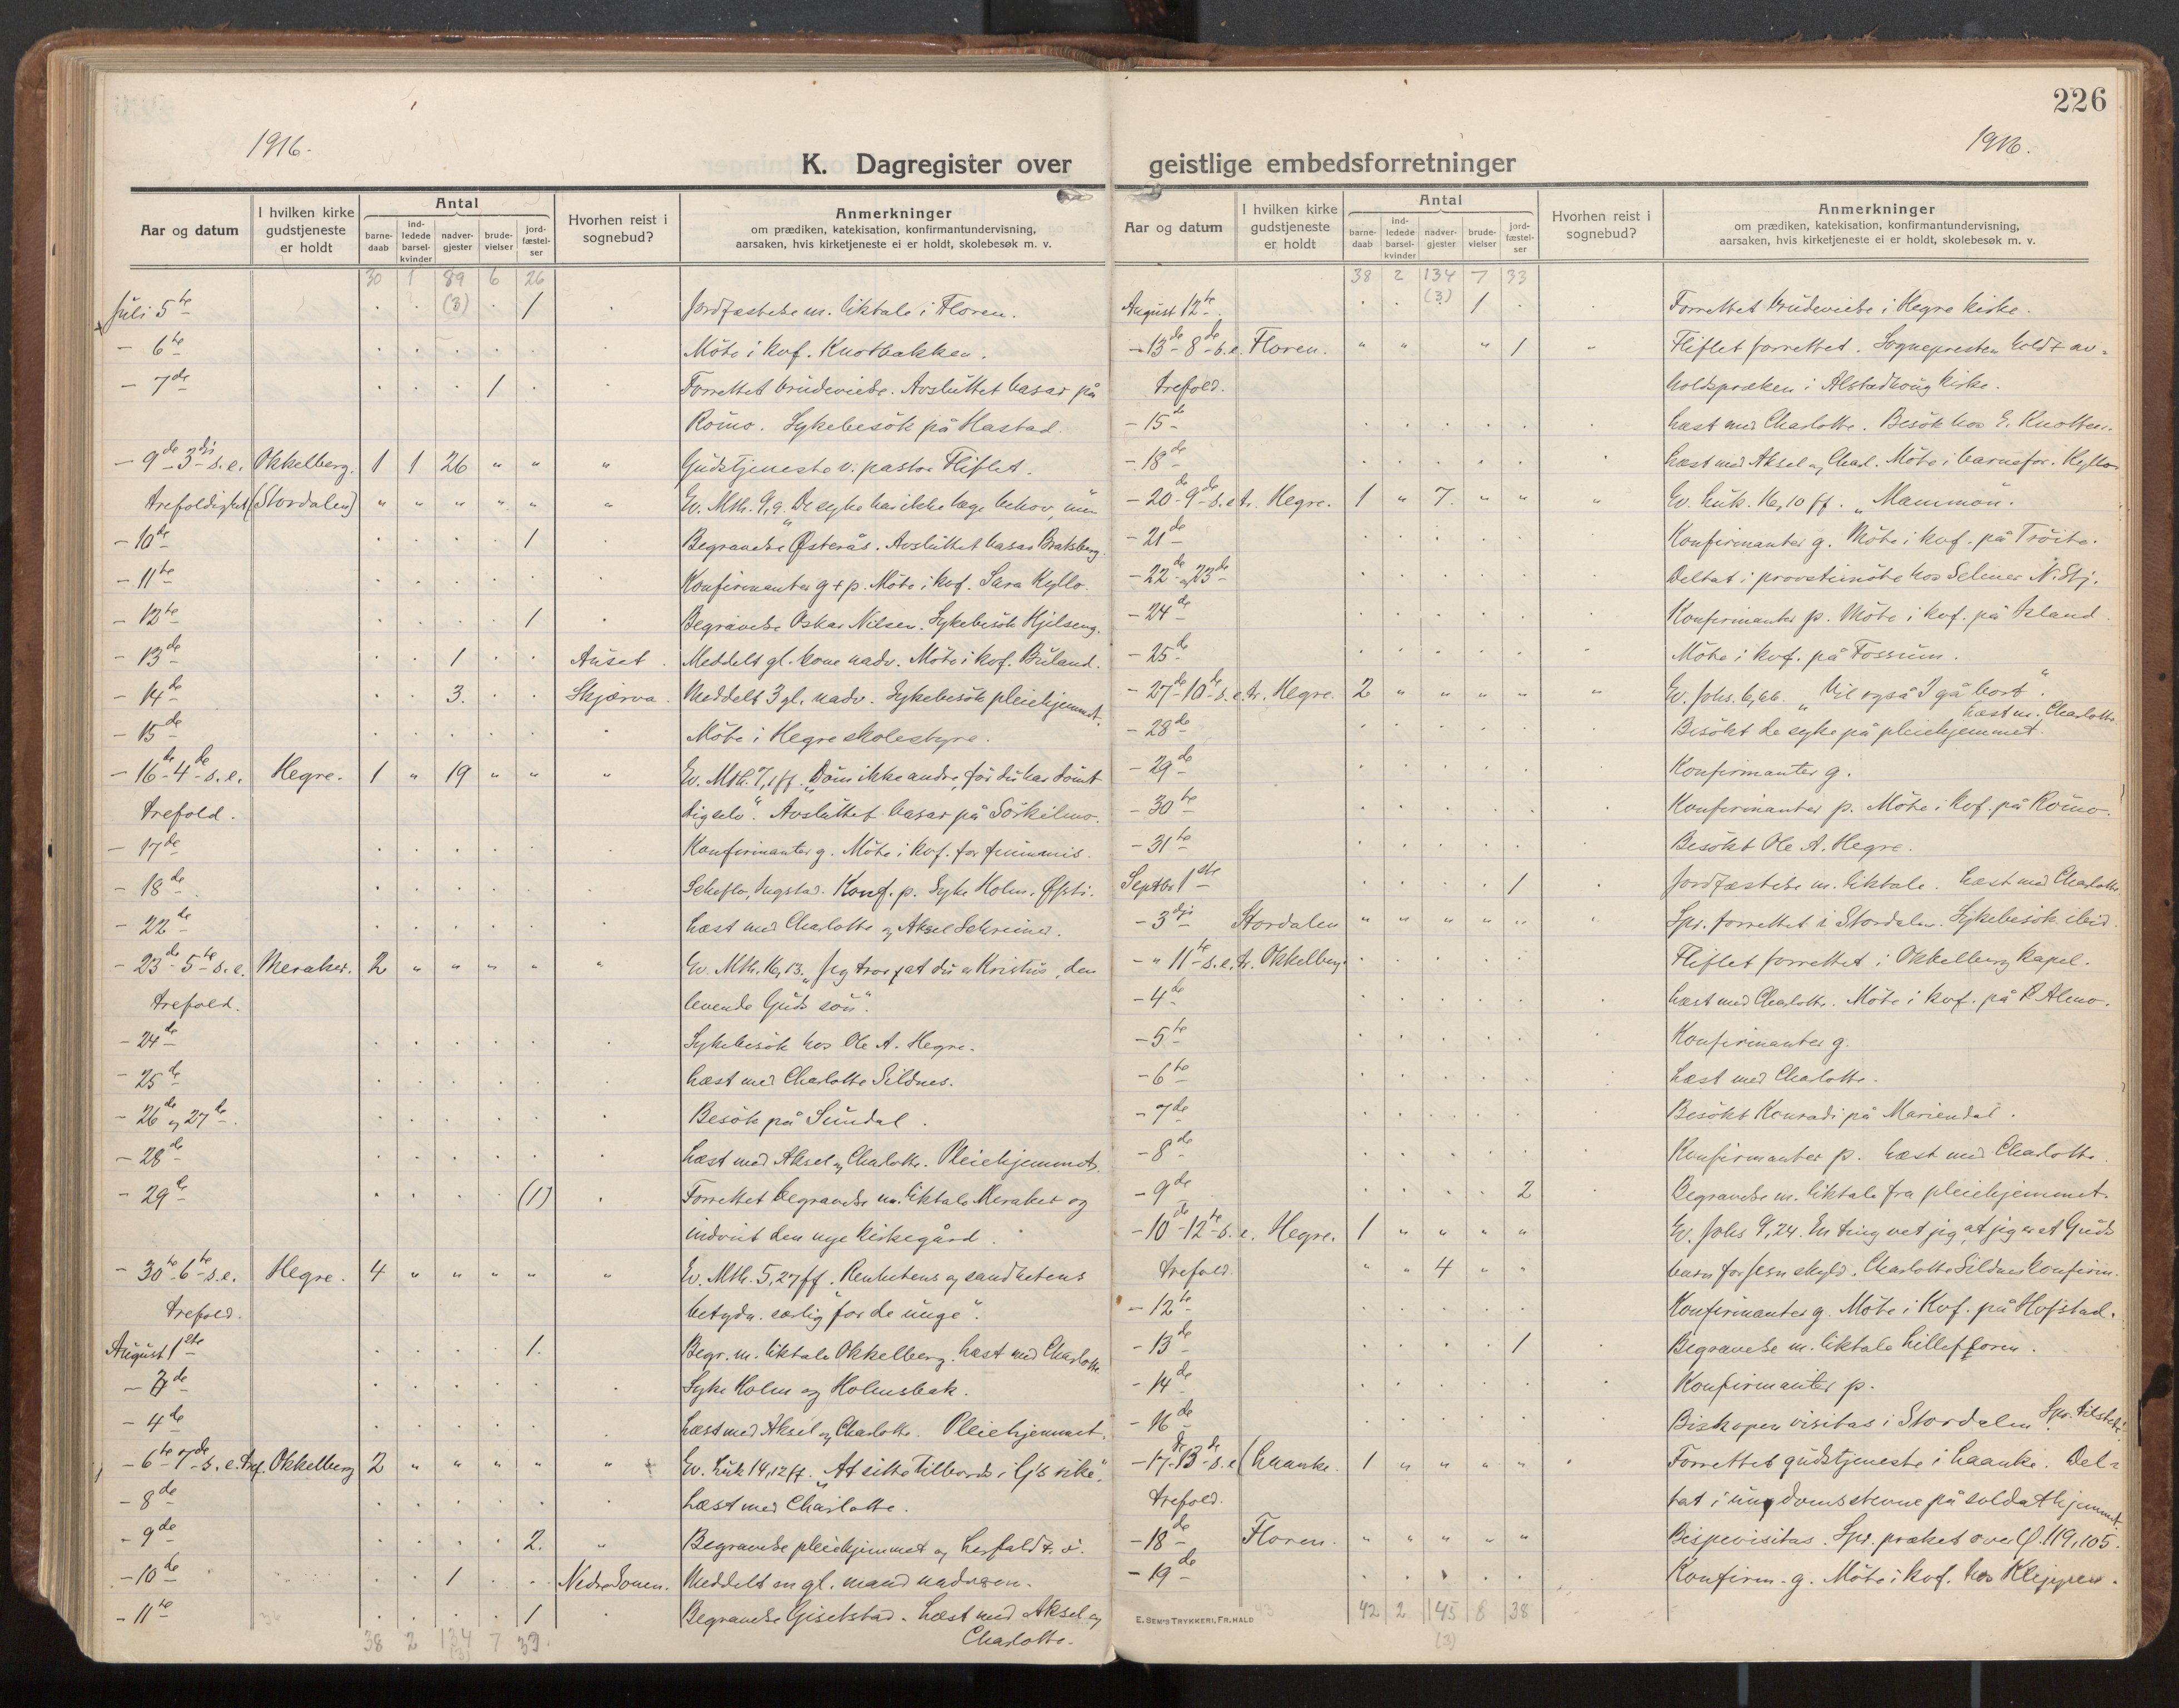 226
1916.
1916.
K. Dagregister over geistlige embedsforretninger
Aar og datum
I hvilken kirke gudstjeneste er holdt
Antal
barne-daab
ind-ledede barsel-kvinder
nadver-gjester
brude-vielser
jord-fæstel-ser
Hvorhen reist i sognebud?
Anmerkninger
om prædiken, katekisation, konfirmantundervisning,
aarsaken, hvis kirketjeneste ei er holdt, skolebesøk m. v.
30 1 89 6 26
Juli 5te (3) 1 Jordfæstelse m. liktale i Floren.
- 6te Möte i kvf. Knotbakken.
- 7de 1 Forrettet brudevielse. Avsluttet basar på
Römo. Sykebesök på Hastad.
- 9de 3dje s.e. Okkelberg. 1 1 26 " " " Gudstjeneste v. pastor Fliflet.
trefoldighet (Stordalen) " " " " " " Ev. Mth. 9,9. De syke har ikke læge behov,
- 10de 1 Begravelse Østerås. Avsluttet basar Bratsberg.
- 11te Konfirmanter g + p. Möte i kvf. Sara Kyllo.
- 12te 1 Begravelse Oskar Nilsen. Sykebesök Kjelseng.
- 13de 1 Auset. Meddelt gl. kone nadv. Möte i kvf. Buland.
- 14de 3. Skjærva. Meddelt 3 gl. nadv. Sykebesök pleiehjemmet.
- 15de Möte i Hegre skolestyre.
- 16de 4de s.e. Hegre. 1 " 19 " " " Ev. Mth. 7,1 ff. "Döm ikke andre, för du har dömt
trefold. dig selv". Avsluttet basar på Sörkilmo.
- 17de Konfirmanter g. Möte i kvf. for
- 18de Ingstad. Konf. p. Syke Holm. Øfsti.
- 22de Læst med Charlotte og Aksel Schreiner.
- 23de 5te s.e. Meraker. 2 " " " " " Ev. Mth. 16,13. "Jeg tror at du er Kristus, den
trefold. levende Guds sön".
- 24de Sykebesök hos Ole A. Hegre.
- 25de Læst med Charlotte Sildnes.
- 26de og 27de. Besök på Sundal.
- 28de Læst med Aksel og Charlotte. Pleiehjemmet.
- 29de (1) Forrettet begravelse m. liktale Meraker og
indviet den nye kirkegård.
- 30te 6te s.e. Hegre. 4 " " " " " Ev. Mth. 5,27 ff. Renhetens og sandhetens
trefold. betydn. særlig "for de unge".
August 1ste 1. Begr. m. liktale Okkelberg. Læst med Charlotte.
- 3de Syke Holm og Holmsbak.
- 4de Læst med Aksel og Charlotte. Pleiehjemmet.
- 6te 7de s.e. tref. Okkelberg 2 " " " " " Ev. Luk 14,12 ff. "At sitte tilbords i G's rike".
- 8de Læst med Charlotte.
- 9de 2. " Begravelse pleiehjemmet og
- 10de 1 Nedre Sonen. Meddelt en gl. mand nadveren.
- 11te 1 Begravelse Gisetstad. Læst med Aksel og
Charlotte.
38 2 134 7 33.
(3)
Aar og datum
I hvilken kirke gudstjeneste er holdt
Antal
barne-daab
ind-ledede barsel-kvinder
nadver-gjester
brude-vielser
jord-fæstel-ser
Hvorhen reist i sognebud?
Anmerkninger
om prædiken, katekisation, konfirmantundervisning,
aarsaken, hvis kirketjeneste ei er holdt, skolebesøk m. v.
38 2 134 7 33
August 12te (3) 1 Forrettet brudevielse i Hegre kirke.
- 13de 8de s.e. Floren. " " " 1 " Fliflet forrettet. Sognepresten holdt av-
trefold. holdspræken i Alstadhoug kirke.
- 15de Læst med Charlotte. Besök hos E. Knotten.
- 18de Læst med Aksel og Charl. Möte i barnefor. Kyllo
- 20de 9de s.e. tr. Hegre. 1 " 7. " " " Ev. Luk. 16,10 ff. "Mammon".
- 21de Konfirmanter g. Möte i kvf. på Tröite.
- 22de og 23de Deltat i provstimöte hos Selmer N. Stj.
- 24de Konfirmanter p. Möte i kvf. på Aaland.
- 25de Möte i kvf. på Fossum.
- 27de 10de s.e. tr. Hegre. 2 " " " " " Ev. Johs. 6,66. "Vil også I gå bort".
- 28de Besökt de syke på pleiehjemmet. Læst m. Charlotte
- 29de Konfirmanter g.
- 30te Konfirmanter p. Möte i kvf. på Römo.
- 31te Besökt Ole A. Hegre.
Septbr 1ste 1 Jordfæstelse m. liktale. Læst med Charlotte.
- 3dje Stordalen " " " " " " Spr. forrettet i Stordalen. Sykebesök ibid.
- " 11te s.e. tr. Okkelberg. Fliflet forrettet i Okkelberg kapel.
- 4de Læst med Charlotte. Möte i kvf. på R. Almo.
- 5te Konfirmanter g.
- 6te Læst med Charlotte.
- 7de Besökt Konradi på Mariendal.
- 8de Konfirmanter p. Læst med Charlotte.
- 9de 2 Begravelse m. liktale fra pleiehjemmet.
- 10de 12te s.e. Hegre. 1 " " " " Ev. Johs 9,24. En ting vet jeg, at jeg er et Guds
trefold. " " 4 " " barn for Jesu skyld. Charlotte Sildnes konfirm.
- 12te Konfirmanter g. Möte i Kvf. på Hofstad.
- 13de 1 Begravelse m. liktale Lillefloren.
- 14de Konfirmanter p.
- 16de Biskopen visitas i Stordalen. Spr. tilstede.
- 17de 13de s.e. (Laanke. 1 " " " " Forrettet gudstjeneste i Laanke. Del-
trefold. tat i ungdomsstevne på soldathjemmet.
- 18de Floren. " " " " " Bispevisitas. Spr. præket over φ. 119,105.
- 19de Konfirm. g. Möte i kvf. hos Kleppen.
E. SEM'S TRYKKERI, FR. HALD
43
42 2 145 8 38
(3)